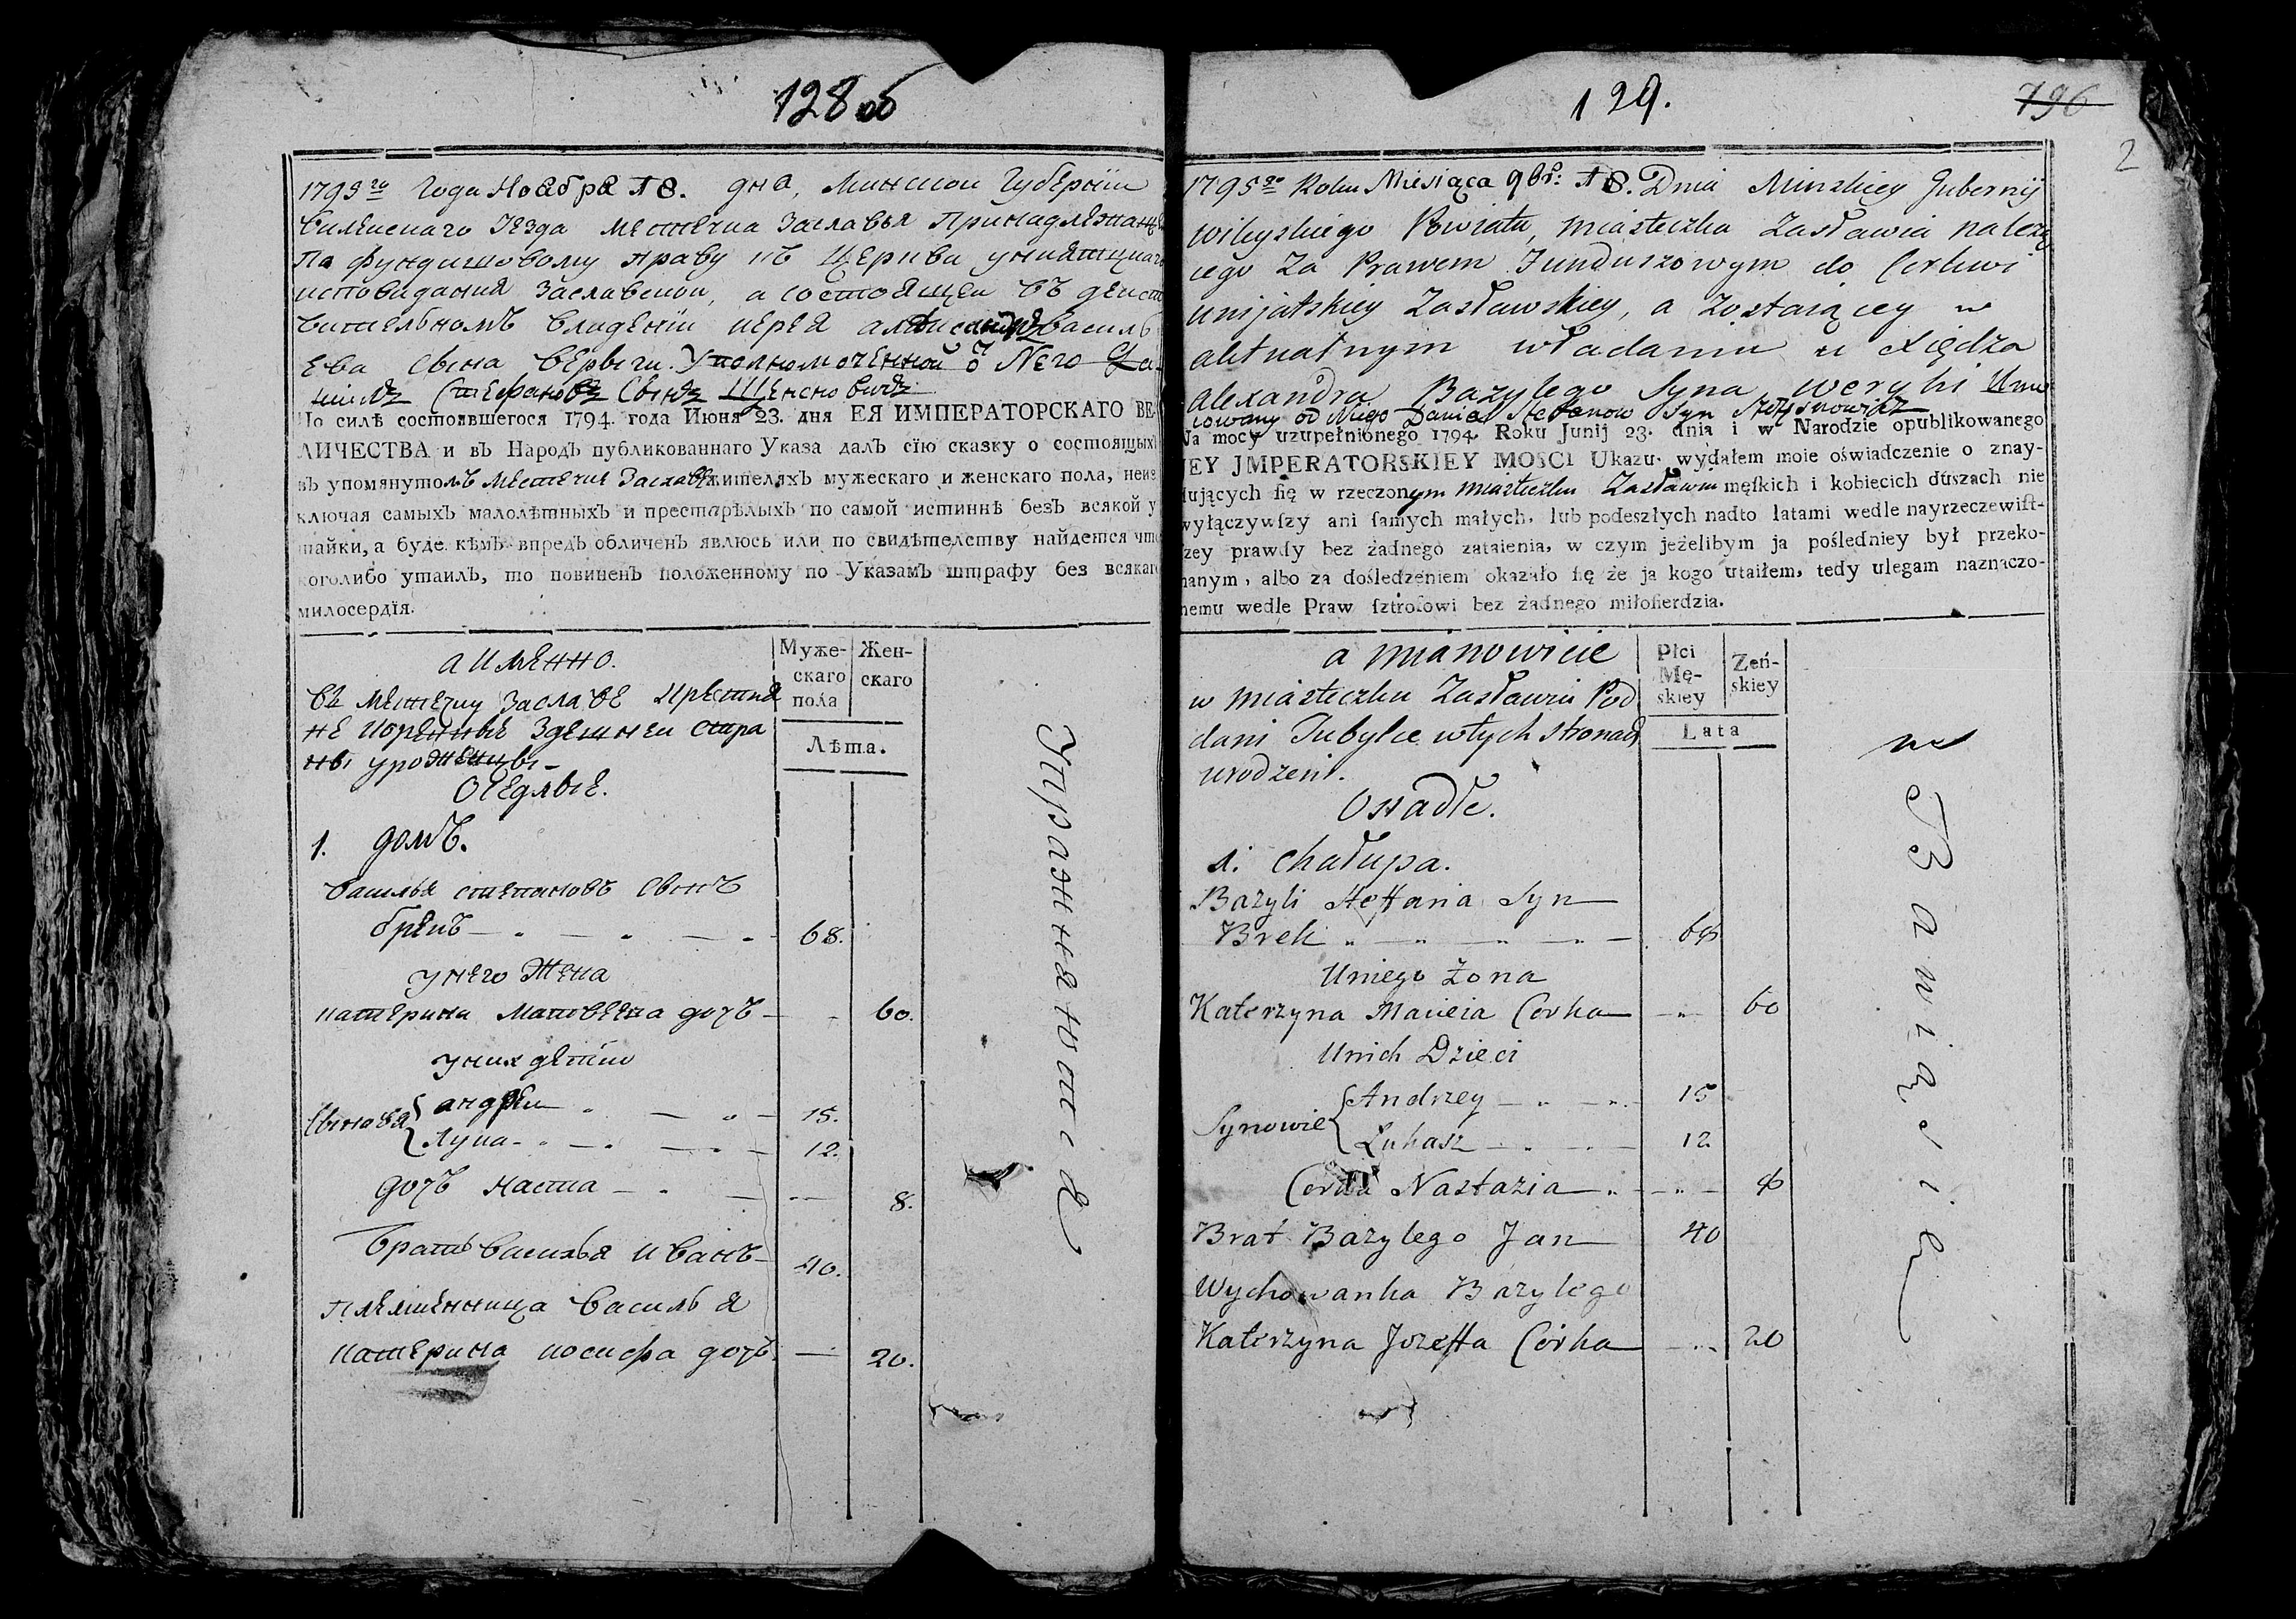 128 об
1795го Года Ноября 18. дня, Минской Губернии
Вилейского уезда местечка Заславья Принадлежащ
По фундушовому праву къ Церкви униятцкаго
исповедания Заславской, а состоящей въ дейст
вительномъ владении иерея Александра Василь
ева сына Верыги. Уполномоченной от Него
Степановъ Сынъ
По силѣ состоявшегося 1794. года Июня 23. дня ЕЯ ИМПЕРАТОРСКАГО ВЕ-
ЛИЧЕСТВА и въ Народъ публикованнаго Указа далъ сїю сказку о состоящыхъ
въ упомянутомъ местечке Заславе жителяхъ мужескаго и женскаго пола, неис
ключая самыхъ малолѣтныхъ и престарѣлыхъ по самой истиннѣ безъ всякой у
тайки, а буде кѣмъ впредь обличенъ явлюсь или по свидѣтелству найдется что
коголибо утаилъ, то повиненъ положенному по Указамъ штрафу без всякаго
милосердїя.
а именно.
Муже-
скаго
пола
Жен-
скаго
Лѣта.
въ местечку Заславе крестия
не коренные здешнеи стра
ны уроженцы-
Оседлые.
1. домъ.
Василья степановъ сынъ
брекъ 68.
у него жена
катерина матвеева дочъ - 60.
у них дети
Сыновья { андрей 15.
Лука 12.
дочъ настa 8.
братъ василья иванъ 40.
племенница василья
катерина иосифа дочъ. 20.
Упражнятие
129.
796
2
1795go Roku Miesiąca 9br: 18. Dnia Minskiey Gubernij
wileyskiego Powiatu, miasteczka Zasławia należą
cego Za Prawem Funduszowym do Cerkwi
unijatskiey Zasławskiey, a zostaiącey w
aktualnym władaniu u xiędza
alexandra Bazylego Syna weryhi Umo
cowany od Niego Daniel Stefanow syn
Na mocy uzupełnionego 1794. Roku Junij 23. dnia i w Narodzie opublikowanego
JEY JMPERATORSKIEY MOSCI Ukazu. wydałem moie oświadczenie o znay-
dujących ſię w rzeczonym miasteczku Zasławiu męſkich i kobiecich duszach nie
wyłączywſzy ani ſamych małych, lub podeszłych nadto latami wedle nayrzeczewiſt-
ſzey prawdy bez żadnego zataienia, w czym jeżelibym ja poſledniey był przeko-
nanym, albo za doſledzeniem okazało ſię że ja kogo utaiłem, tedy ulegam naznaczo-
nemu wedle Praw ſztrofowi bez żadnego miłoſierdzia.
a mianowicie
Płci
Mę-
skiey
Zeń-
skiey
Lata
w miasteczku Zasławiu Pod
dani Tubylce wtych stronach
urodzeni.
Ossadłe.
1. chałupa.
Bazyli Steffana Syn
Brek 68
Uniego żona
Katerzyna Macieia Corka 60
Unich Dzieci
Synowie { Andrzey 15
Łukasz 12
Corka Nastazia 8
Brat Bazylego Jan 40
Wychowanka Bazylego
Katerzyna Jozeffa Córka 20
Bawiąsie